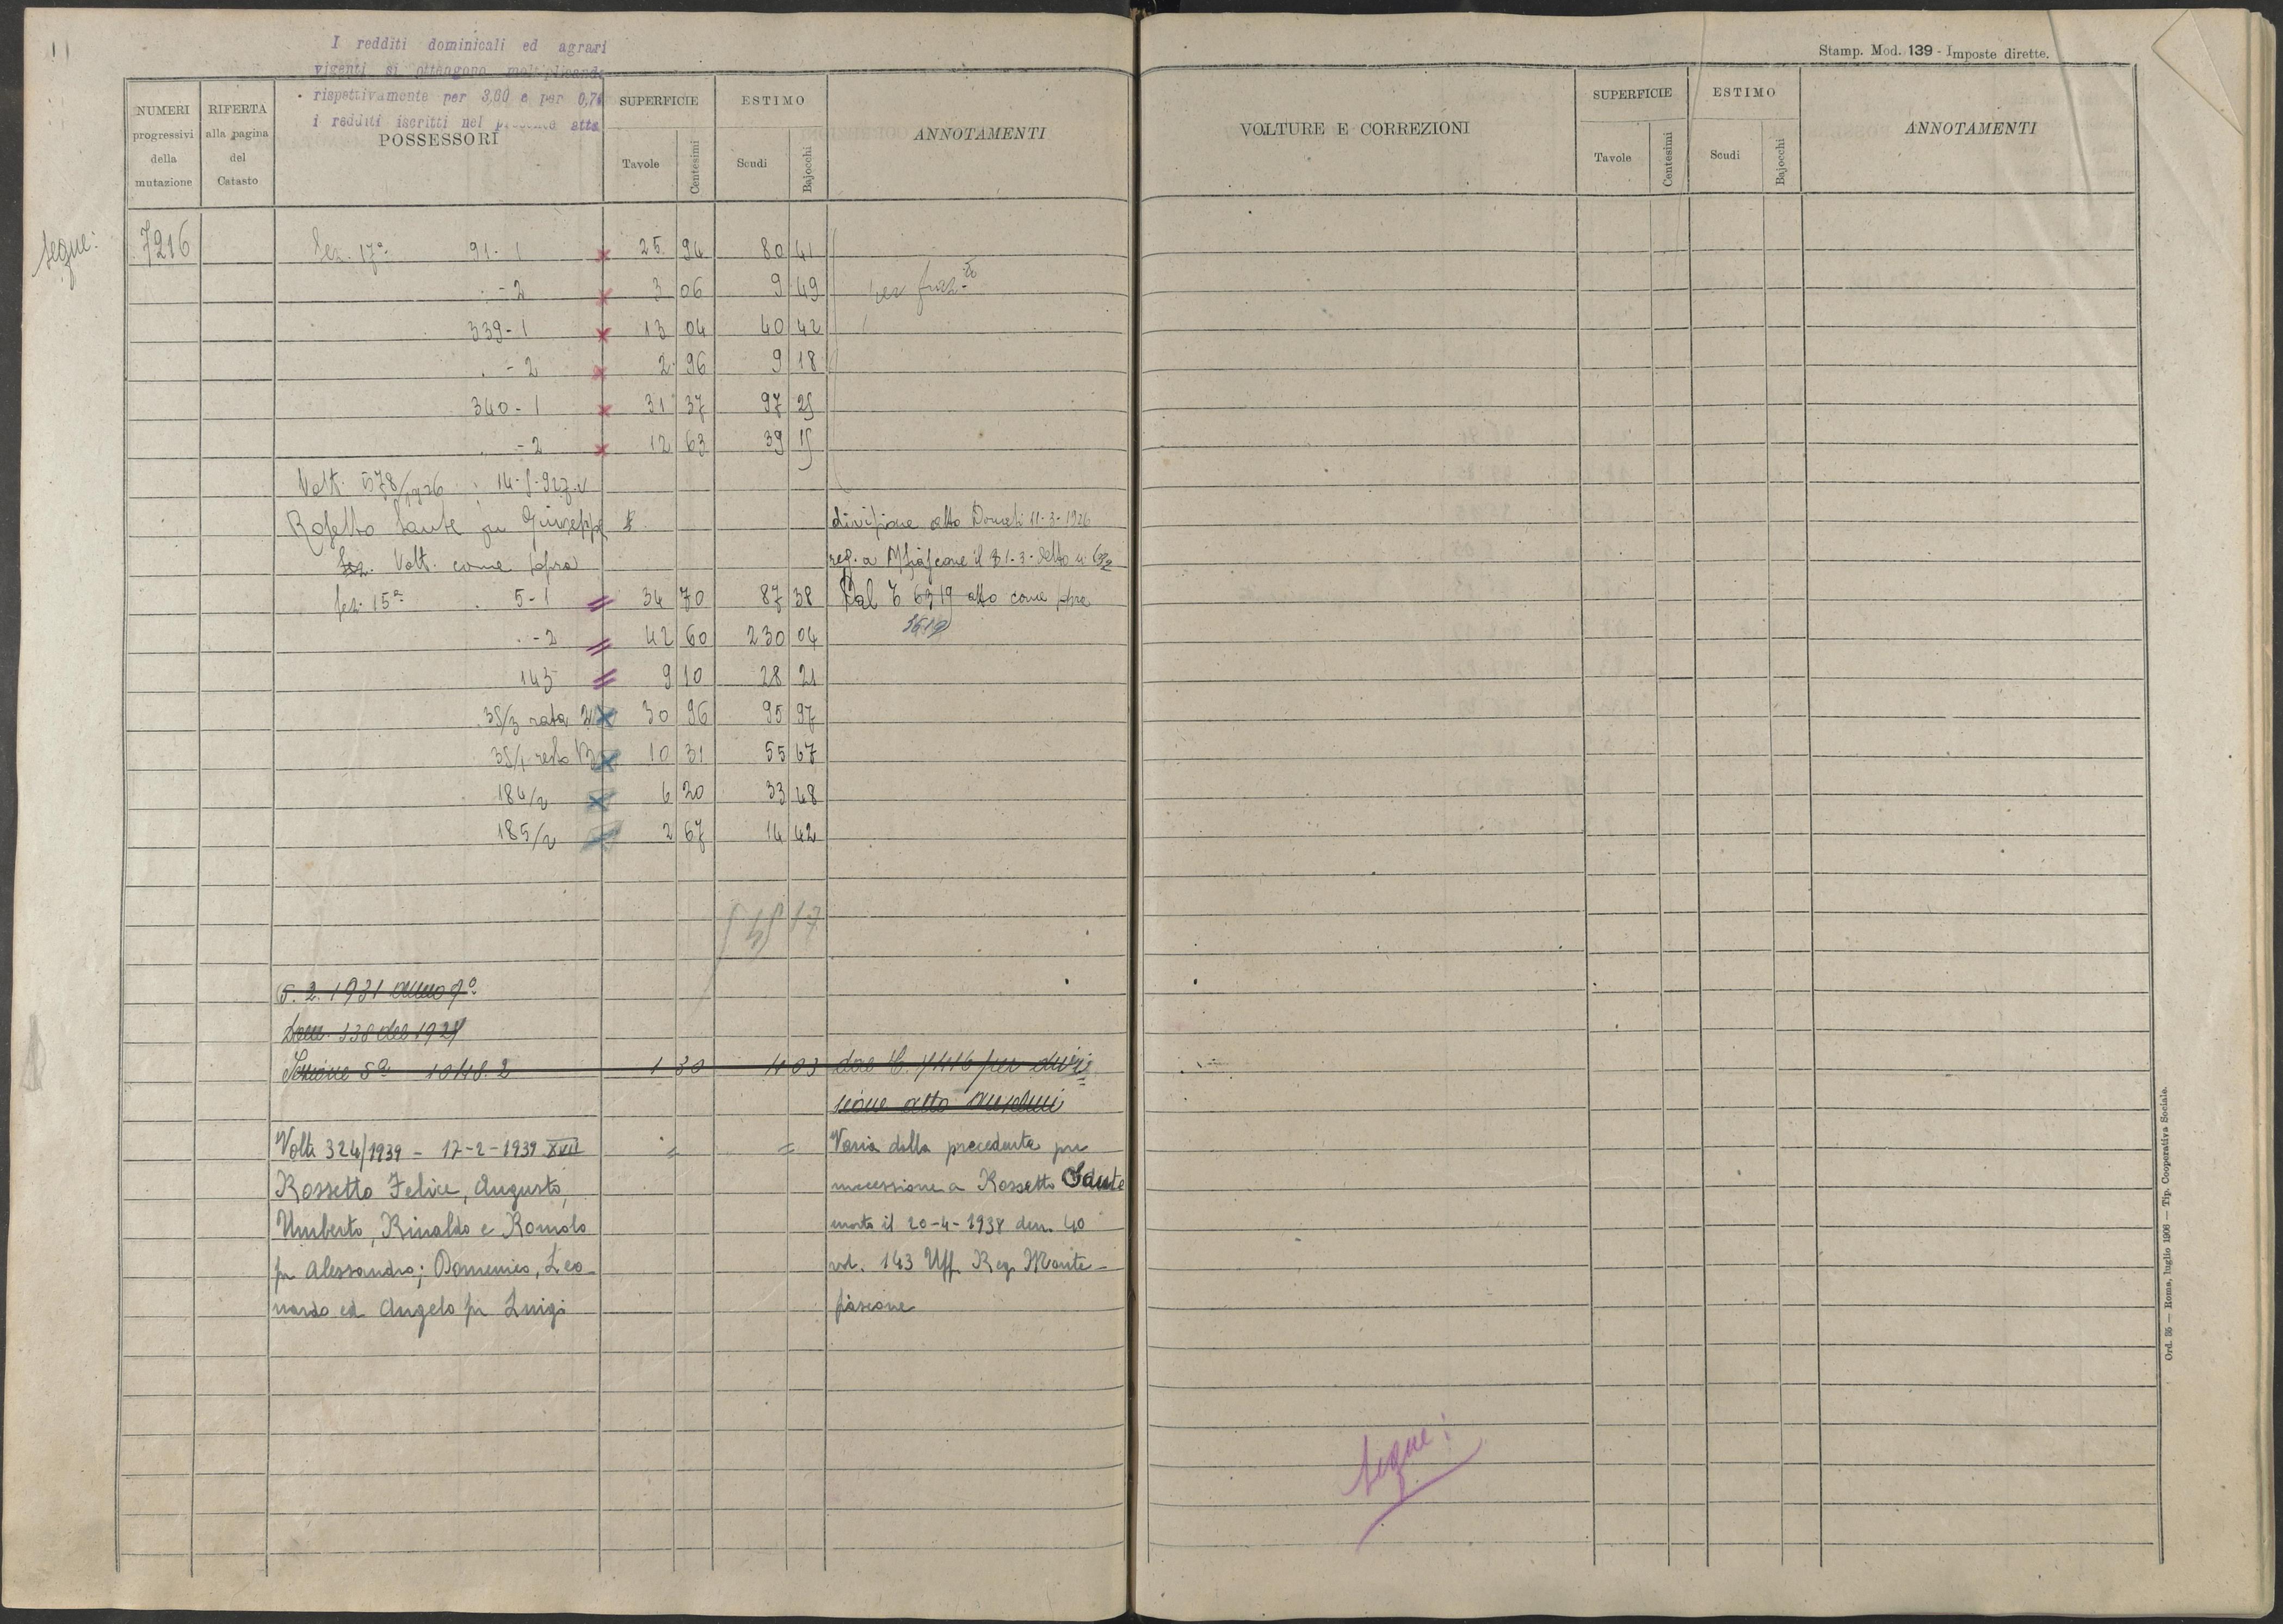 I redditi dominicali ed agrari
vigenti si ottengono moltiplicando
rispettivamente per 3,60 e per 0,70
i redditi iscritti nel presente atto
Stamp. Mod. 139 - Imposte dirette.
NUMERI progressivi della mutazione
RIFERTA alla pagina del Catasto
POSSESSORI
SUPERFICIE
Tavole
Centesimi
ESTIMO
Scudi
Bajocchi
ANNOTAMENTI
VOLTURE E CORREZIONI
SUPERFICIE
Tavole
Centesimi
ESTIMO
Scudi
Bajocchi
ANNOTAMENTI
segue: 7216 Sez. 17ª 91-1 25 94 80 41
. -2 3 06 9 49 per fraz.to
339-1 13 04 40 42
. -2 2 96 9 18
340-1 31 37 97 25
. -2 12 63 39 15
Volt. 578/1926 14-5-927.V
Rosetto Sante fu Giuseppe divisione atto Donati 11-3-1926
Volt. come sopra reg. a Mfiascone il 31-3-detto n. 632
Sez. 15ª 5-1 34 70 87 38 Dal T 6319 atto come sopra
. -2 42 60 230 04 3519
143 9 10 28 21
35/3 rata 30 96 95 97
35/1 resto 10 31 55 67
184/2 6 20 33 48
185/2 2 67 14 42
17
5. 2. 1931 anno 9º
338 del 1928
Sezione 5ª 1048. 2 1 30 4 03 dal C. 7416 per divi
sione atto Anselmi
Volt. 324/1939 - 17-2-1939 XVII = = Varia dalla precedente per
Rossetto Felice, Augusto, successione a Rossetto Sante
Umberto, Rinaldo e Romolo morto il 20-4-1938 den. 40
fu Alessandro; Domenico, Leo vol. 143 Uff. Reg. Monte-
nardo ed Angelo fu Luigi fiascone
segue:
Ord. 55 — Roma, luglio 1906 — Tip. Cooperativa Sociale.